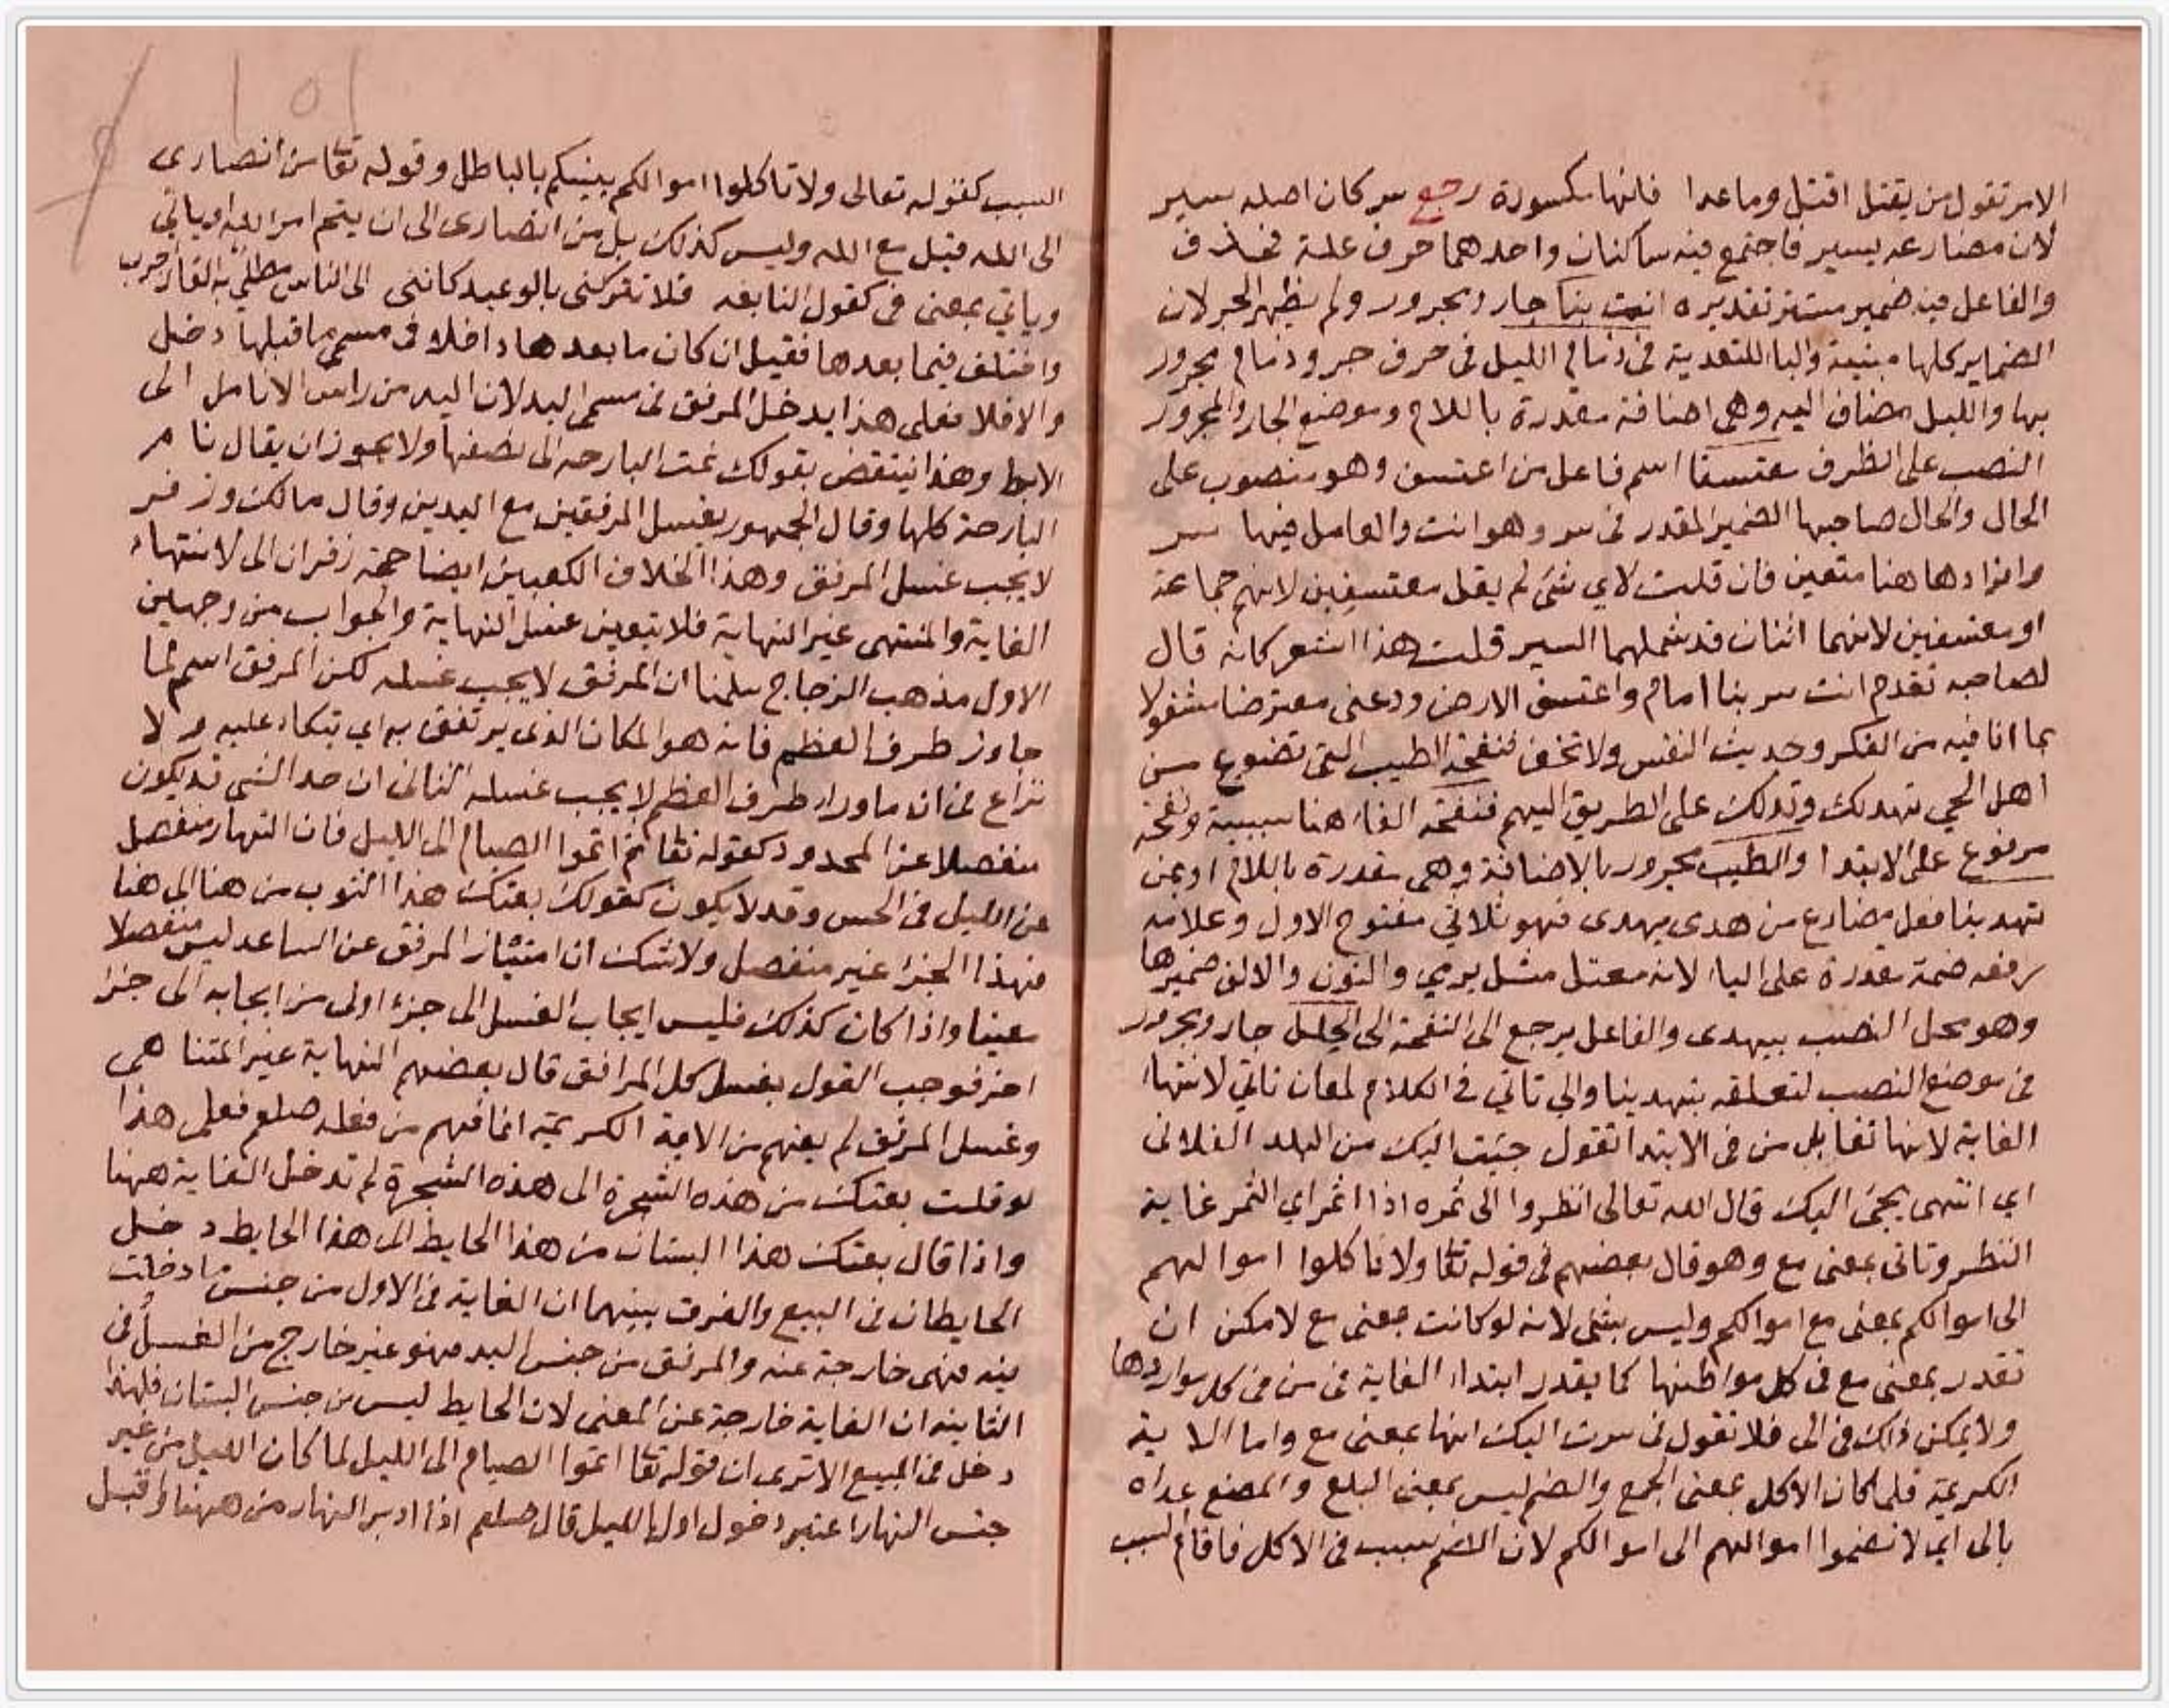 الامر تقول من يقتل اقتل وما عدا فانها مكسورة رجع سر كان اصله سير
لان مضارعه يسير فاجتمع فيه ساكنان واحدهما حرف علة فحذف
والفاعل فيه ضمير مستتر تقديره انت بنا جار ومجرور ولم يظهر الجر لان
الضماير كلها مبنية والبا للتعدية في ذمام الليل في حرف جر وذمام مجرور
بها والليل مضاف اليه وهي اضافة مقدرة باللام وموضع الجار والمجرور
النصب على الظرف معتسفا اسم فاعل من اعتسف وهو منصوب على
الحال والحال صاحبها الضمير المقدر في سر وهو انت والعامل فيها سر
وافرادها هنا متعين فان قلت لاي شى لم يقل معتسفين لانهم جماعة
او معتسفين لانهما اثنان قد شملهما السير قلت هذا الشعر كانه قال
لصاحبه تقدم انت سر بنا امام واعتسف الارض ودعنى معترضا مشغولا
بما انا فيه من الفكر وحديث النفس ولا تخف فنفحة الطيب التى تضوع من
اهل الحي تهديك وتدلك على الطريق اليهم فنفحة الفاء هنا سببية ونفحة
مرفوع على الابتدا والطيب مجرور بالاضافة وهى مقدرة باللام او بمن
تهدينا فعل مضارع من هدى يهدى فهو ثلاثي مفتوح الاول وعلامة
رفعه ضمة مقدرة على اليا لانه معتل مثل يرمي والنون والالف ضميرها
وهو محل النصب بيهدى والفاعل يرجع الى النفحة الى الحلل جار ومجرور
في موضع النصب لتعلقه بتهدينا والي تاتي في الكلام لمعان تاتي لانتهاء
الغاية لانها تقابل من في الابتدا تقول جئت اليك من البلد الفلانى
اي انتهى مجئ اليك قال الله تعالى انظروا الى ثمره اذا اثمر اي الثمر غاية
النظر وتاتى بمعنى مع وهو قال بعضهم في قوله تعا ولا تاكلوا اموالهم
الى اموالكم بمعنى مع اموالكم وليس بشى لانه لو كانت بمعنى مع لامكن ان
تقدر بمعنى مع فى كل مواطنها كما يقدر ابتداء الغاية في من في كل مواردها
ولا يمكن ذلك في الى فلا تقول في سرت اليك انها بمعنى مع واما الاية
الكريمة فلما كان الاكل بمعنى الجمع والضم ليس بمعنى البلع والمضغ عداه
بالى اي لا تضموا اموالهم الى اموالكم لان الضم سبب في الاكل فاقام السبب
السبب كقوله تعالى ولا تاكلوا اموالكم بينكم بالباطل وقوله تعا من انصارى
الى الله قيل مع الله وليس كذلك بل من انصارى الى ان يتم امر الله او ياتي
وياتي بمعنى فى كقول النابغه فلا تتركنى بالوعيد كاننى الى الناس مطلي به القار اجرب
واختلف فيما بعدها فقيل ان كان ما بعدها داخلا في مسمى ما قبلها دخل
والا فلا فعلى هذا يدخل المرفق في مسمى اليد لان اليد من راس الانامل الى
الابط وهذا ينتقض بقولك نمت البارحه الى نصفها ولا يجوز ان يقال نام
البارحة كلها وقال الجمهور يغسل المرفقين مع اليدين وقال مالك وزفر
لا يجب غسل المرفق وهذا الخلاف الكعبين ايضا حجة زفر ان الى لانتهاء
الغاية والمنتهى غير النهاية فلا يتعين غسل النهاية والجواب من وجهين
الاول مذهب الزجاج سلمنا ان المرفق لا يجب غسله لكن المرفق اسم لما
جاوز طرف العظم فانه هو المكان الذى يرتفق به اي يتكاء عليه ولا
نزاع في ان ما وراء طرف العظم لا يجب غسله الثانى ان حد الشى قد يكون
منفصلا عن المحدود كقوله تعا ثم اتموا الصيام الى الليل فان النهار منفصل
عن الليل في الحس وقد لا يكون كقولك بعتك هذا الثوب من هنا الى هنا
فهذا الجزا غير منفصل ولا شك ان امتياز المرفق عن الساعد ليس منفصلا
معينا واذا كان كذلك فليس ايجاب الغسل الى جزء اولى من ايجابه الى جزا
اخر فوجب القول بغسل كل المرافق قال بعضهم النهاية غير المتناهى
وغسل المرفق لم يفهم من الاية الكريمة انما فهم من فعله صلعم فعلى هذا
لو قلت بعتك من هذه الشجرة الى هذه الشجرة لم تدخل الغاية ههنا
واذا قال بعتك هذا البستان من هذا الحايط الى هذا الحايط دخل
الحايطان في البيع والفرق بينهما ان الغاية في الاول من جنس ما دخلت
فيه فهى خارجة عنه والمرفق من جنس اليد فهو غير خارج من الغسل في
الثانية ان الغاية خارجة عن المعنى لان الحايط ليس من جنس البستان فلهذا
دخل في المبيع الا ترى ان قوله تعا اتموا الصيام الى الليل لما كان الليل من غير
جنس النهار اعتبر دخول اول الليل قال صلعم اذا ادبر النهار من ههنا واقبل